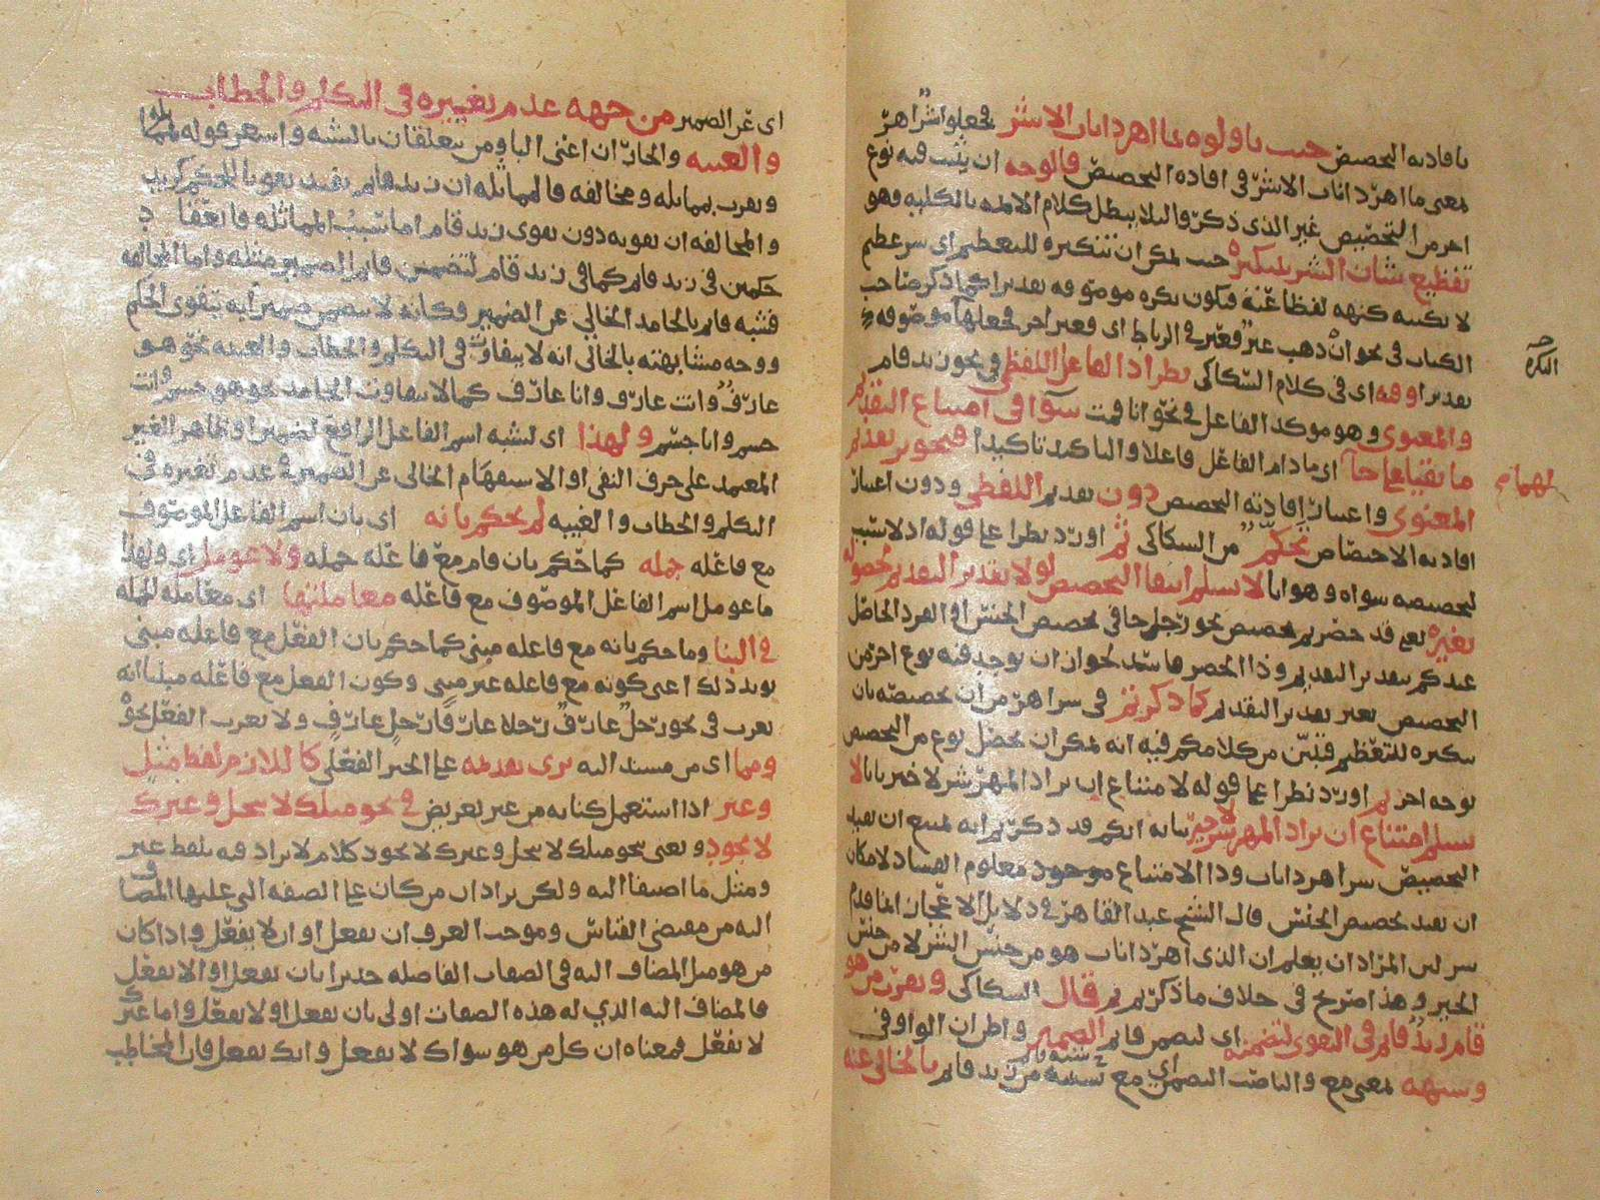 بافادته التخصيص حيث تاولوه بما اهر ذا ناب الا شر فجعلوا شر اهر
معنى ما اهر ذا ناب الا شر في افادة التخصيص فالوجه ان يثبت فيه نوع
اخر من التخصيص غير الذي ذكر والا لا يبطل كلام الايمة بالكلية وهو
تفظيع شان الشر بتنكيره حيث يمكن ان تنكيره للتعظيم اي شر عظيم
لا يكتنه كنهه فتكون نكرة موصوفة تقديرا كما ذكر صاحب
الكتاب في نحو ان ذهب عير فعير في الرباط اي فعير اخر فجعلها موصوفة
النكرة
تقديرا وفيه اي في كلام السكاكي نظر اذ الفاعل اللفظي في نحو زيد قام
والمعنوي وهو موكد الفاعل في نحو انا قمت سوا في امتناع التقديم
ما بقيا على حالهما اي ما دام الفاعل فاعلا والتاكيد تاكيدا فتجويز تقديم
المعنوي واعتبار افادته التخصيص دون تقديم اللفظي ودون اعتبار
افادته الاختصاص تحكم من السكاكي ثم اورد نظرا على قوله اذ لا سبب
لتخصيصه سواه وهو انا لا نسلم انتفا التخصيص لولا تقدير التقديم لحصوله
بغيره نعم قد حصر
عندكم بتقدير التقديم وذا الحصر فاسد لجواز ان يوجد فيه نوع اخر من
التخصيص بغير تقدير التقديم كما ذكرتم في شر اهر من ان تخصيصه بان
تنكيره للتعظيم فتبين من كلامكم فيه انه يمكن ان يحصل نوع من التخصيص
بوجه اخر ثم اورد نظرا على قوله لامتناع ان يراد المهر شر لا خير بانا لا
نسلم امتناع ان يراد المهر شر لا خير بيانه انكم قد ذكرتم انه يمتنع ان يفيد
التخصيص شر اهر ذا ناب وذا الامتناع موجود معلوم الفساد لامكان
ان يفيد تخصيص الجنس قال الشيخ عبد القاهر في دلائل الاعجاز انما قدم
شر لان المراد ان يعلم ان الذي اهر ذا ناب هو من جنس الشر لا من جنس
الخير وهذا صريح في خلاف ما ذكرتم ثم قال السكاكي ويقرب من هو
قام زيد قايم في التقوي لتضمنه اي لتضمن قايم الضمير واظن ان الواو في
وشبهه بمعنى مع والناصب التضمن اي مع شبهه من زيد قايم بالخالي عنه
اي عن الضمير من جهة عدم تغييره في التكلم والخطاب
والغيبة والجار ان اعني البا ومن يتعلقان بالشبه واشعر قوله
ويقرب بمماثلة ومخالفة فالمماثلة ان زيد قايم يفيد تقويا للحكم
والمخالفة ان تقويه دون تقوي زيد قام اما سبب المماثلة
حكمين في زيد قايم كما في زيد قام لتضمن قايم الضمير مثله واما المخالفة
فشبه قايم بالجامد الخالي عن الضمير فكانه لا يتضمن ضميرا به يتقوى الحكم
ووجه مشابهته بالخالي انه لا يتفاوت في التكلم والخطاب والغيبة نحو هو
عارف وانت عارف وانا عارف كما لا يتفاوت الجامد نحو هو جسم وانت
جسم وانا جسم ولهذا اي لشبه اسم الفاعل الرافع لضمير او ظاهر الغير
المعتمد على حرف النفي او الاستفهام الخالي عن الضمير في عدم تغيره في
التكلم والخطاب والغيبة لم يحكم بانه اي بان اسم الفاعل الموصوف
مع فاعله جملة كما حكم بان قام مع فاعله جملة ولا عومل اي ولهذا
ما عومل اسم الفاعل الموصوف مع فاعله معاملتها اي معاملة الجملة
في البنا وما حكم بانه مع فاعله مبني كما حكم بان الفعل مع فاعله مبني
يويد ذلك اعني كونه مع فاعله غير مبني وكون الفعل مع فاعله مبنيا انه
يعرب في نحو رجل عارف رجلا عارفا رجل عارف ولا يعرب الفعل نحو
ومما اي من مسند اليه يرى تقديمه على الخبر الفعلي كاللازم لفظ مثل
وغير اذا استعمل كناية من غير تعريض في نحو مثلك لا يبخل وغيرك
لا يجود ونعني بنحو مثلك لا يبخل وغيرك لا يجود كلام لا يراد فيه بلفظ غير
ومثل ما اضيفا اليه ولكن يراد ان من كان على الصفة التي عليها المضاف
اليه من مقتضى القياس وموجب العرف ان يفعل او ان لا يفعل واذا كان
من هو مثل المضاف اليه في الصفات الفاضلة جديرا بان يفعل او ان لا يفعل
فالمضاف اليه الذي له هذه الصفات اولى بان يفعل او لا يفعل واما غيرك
لا يفعل فمعناه ان كل من هو سواك لا يفعل وانك تفعل فان المخاطب